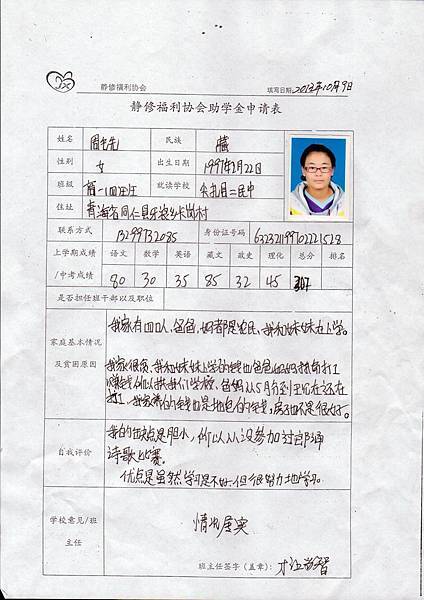 静修福利协会
填写日期:2013年10月9日
静修福利协会助学金申请表
姓名
民族 藏
性别 女 出生日期 1997年2月22日
班级 就读学校 尖扎县二民中
住址 青海省同仁县
联系方式 13299732085 身份证号码
上学期成绩/中考成绩
语文 数学 英语 藏文 政史 理化 总分 排名
80 30 35 85 32 45 307
是否担任班干部以及职位
家庭基本情况及贫困原因
我家有四口人,爸爸,妈都是农民,我和妹妹在上学。
我家很贫,我和妹妹上学的钱也爸爸妈妈
赚钱 供我们学校。爸妈从5月份到现在还在
打工,我家 的钱也是 的钱,房子也不是很好。
自我评价
我的缺点是胆小,所以从没参加过朗诵
诗歌比赛。
优点是虽然学习是不好但很努力地学习。
学校意见/班主任
情况属实
班主任签字(盖章):